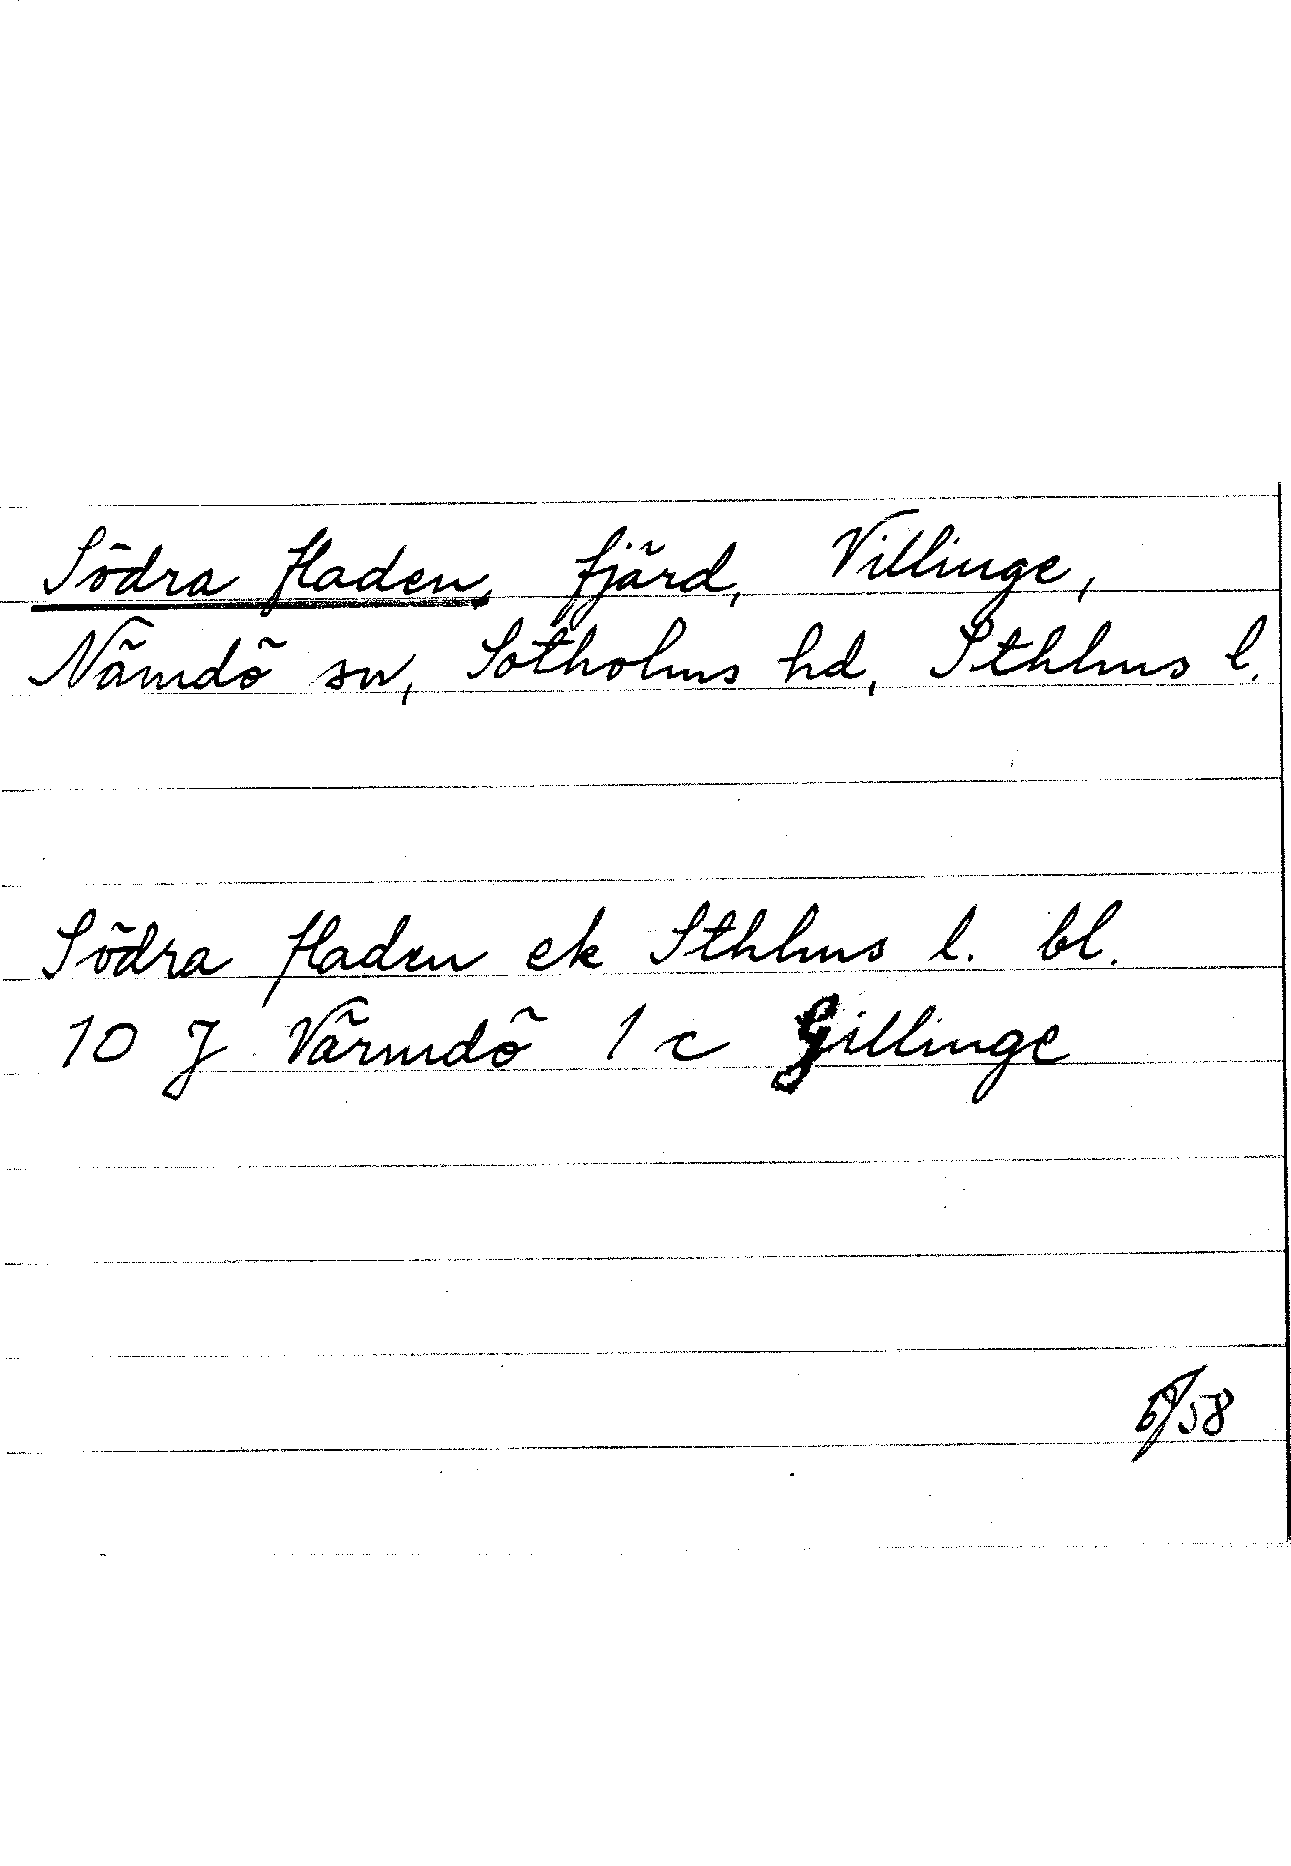 Södra fladen, fjärd, Villinge,
Nämdö sn, Sotholms hd, Sthlms l.
Södra fladen ek Sthlms l. bl.
10 J Värmdö 1 c Gillinge
/58